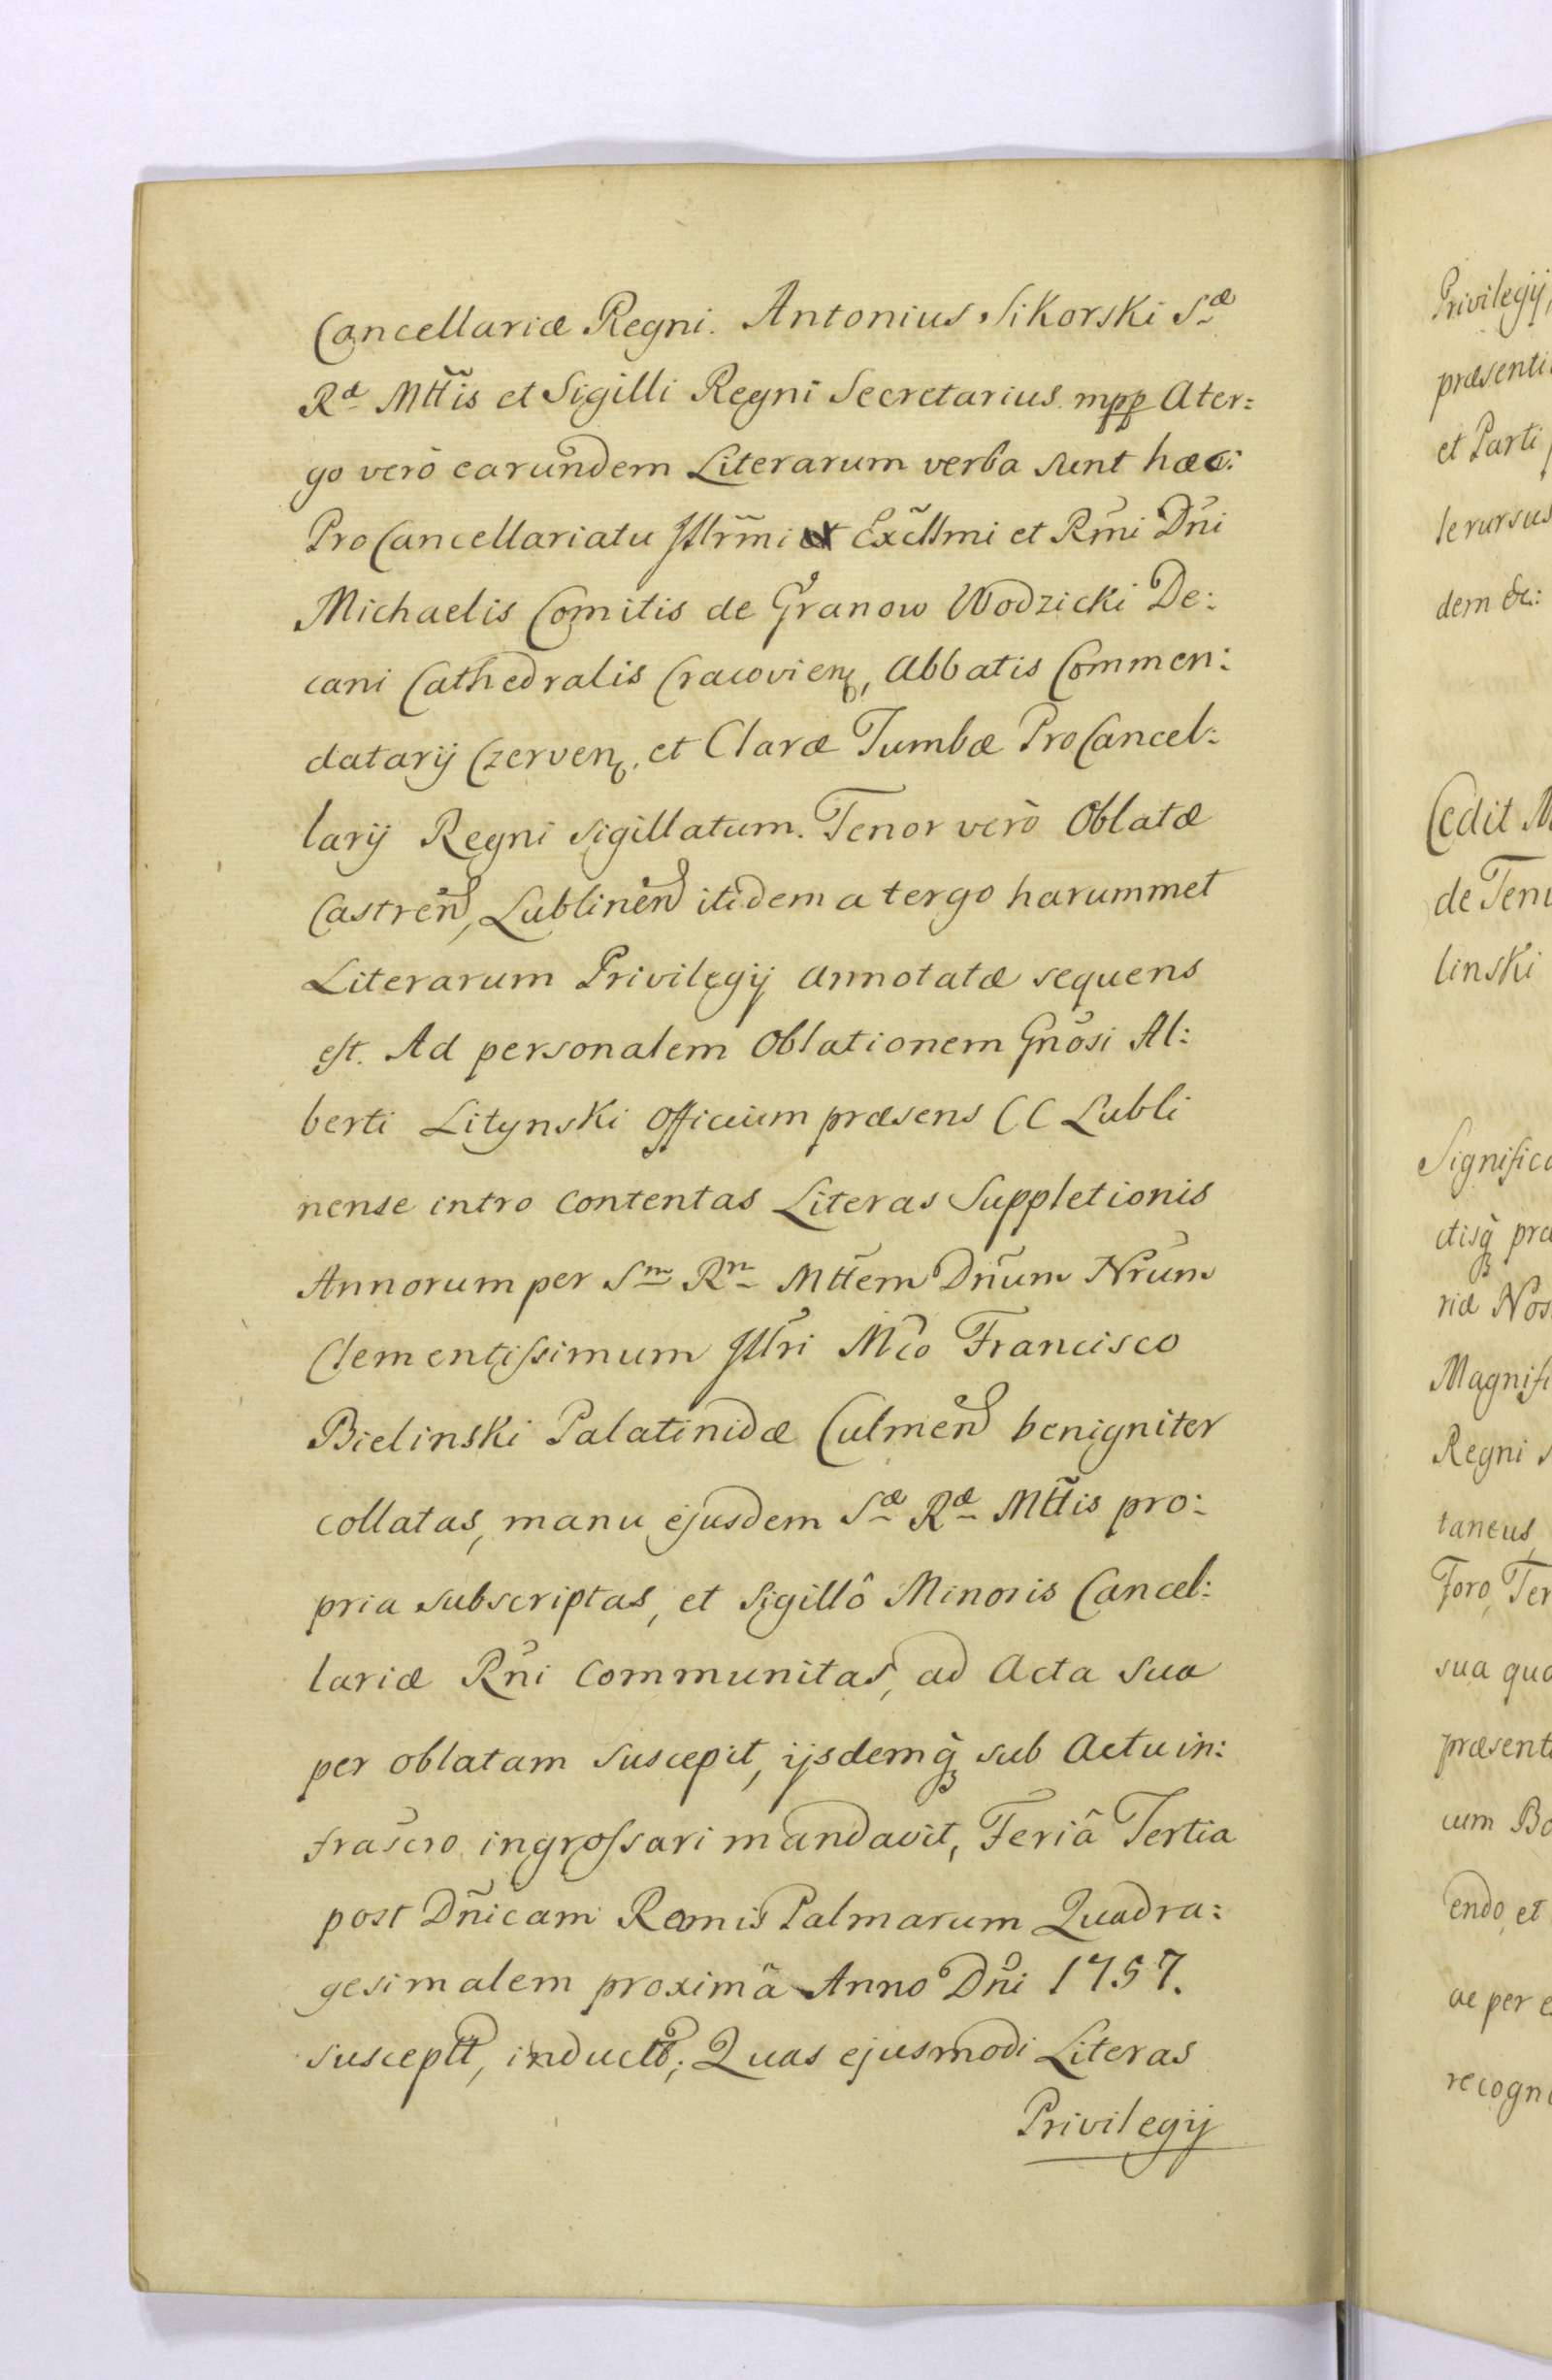 Cancellariæ Regni. Antonius Sikorski Sæ
Ræ Mttis et Sigilli Regni Secretarius mpp Ater:
go verò earundem Literarum verba sunt hæc:
ProCancellariatu Illrmi et Excllmi et Rmi Dni
Michaelis Comitis de Granow Wodzicki De:
cani Cathedralis Cracovien, Abbatis Commen:
datarij Czerven, et Claræ Tumbæ ProCancel:
larij Regni sigillatum. Tenor verò Oblatæ
Castren, Lublinen itidem a tergo harummet
Literarum Privilegij annotatæ sequens
est. Ad personalem Oblationem Gnosi Al:
berti Litynski Officium præsens CC Lubli
nense intro contentas Literas Suppletionis
Annorum per Sm Rm Mttem Dnum Nrum
Clementissimum Illri Mco Francisco
Bielinski Palatinidæ Culmen benigniter
collatas, manu ejusdem Sæ Ræ Mttis pro:
pria subscriptas, et Sigillô Minoris Cancel:
lariæ Rni communitas, ad Acta sua
per oblatam suscepit, ijsdemq̀ sub Actu in:
frascro ingrossari mandavit, Feriâ Tertia
post Dnicam Ramis Palmarum Quadra:
gesimalem proximâ Anno Dni 1757.
susceptt, inductt; Quas ejusmodi Literas
Privilegij
Privilegij
et Parti
dem &c:
Cedit
linski
Regni
taneus
Foro
endo et